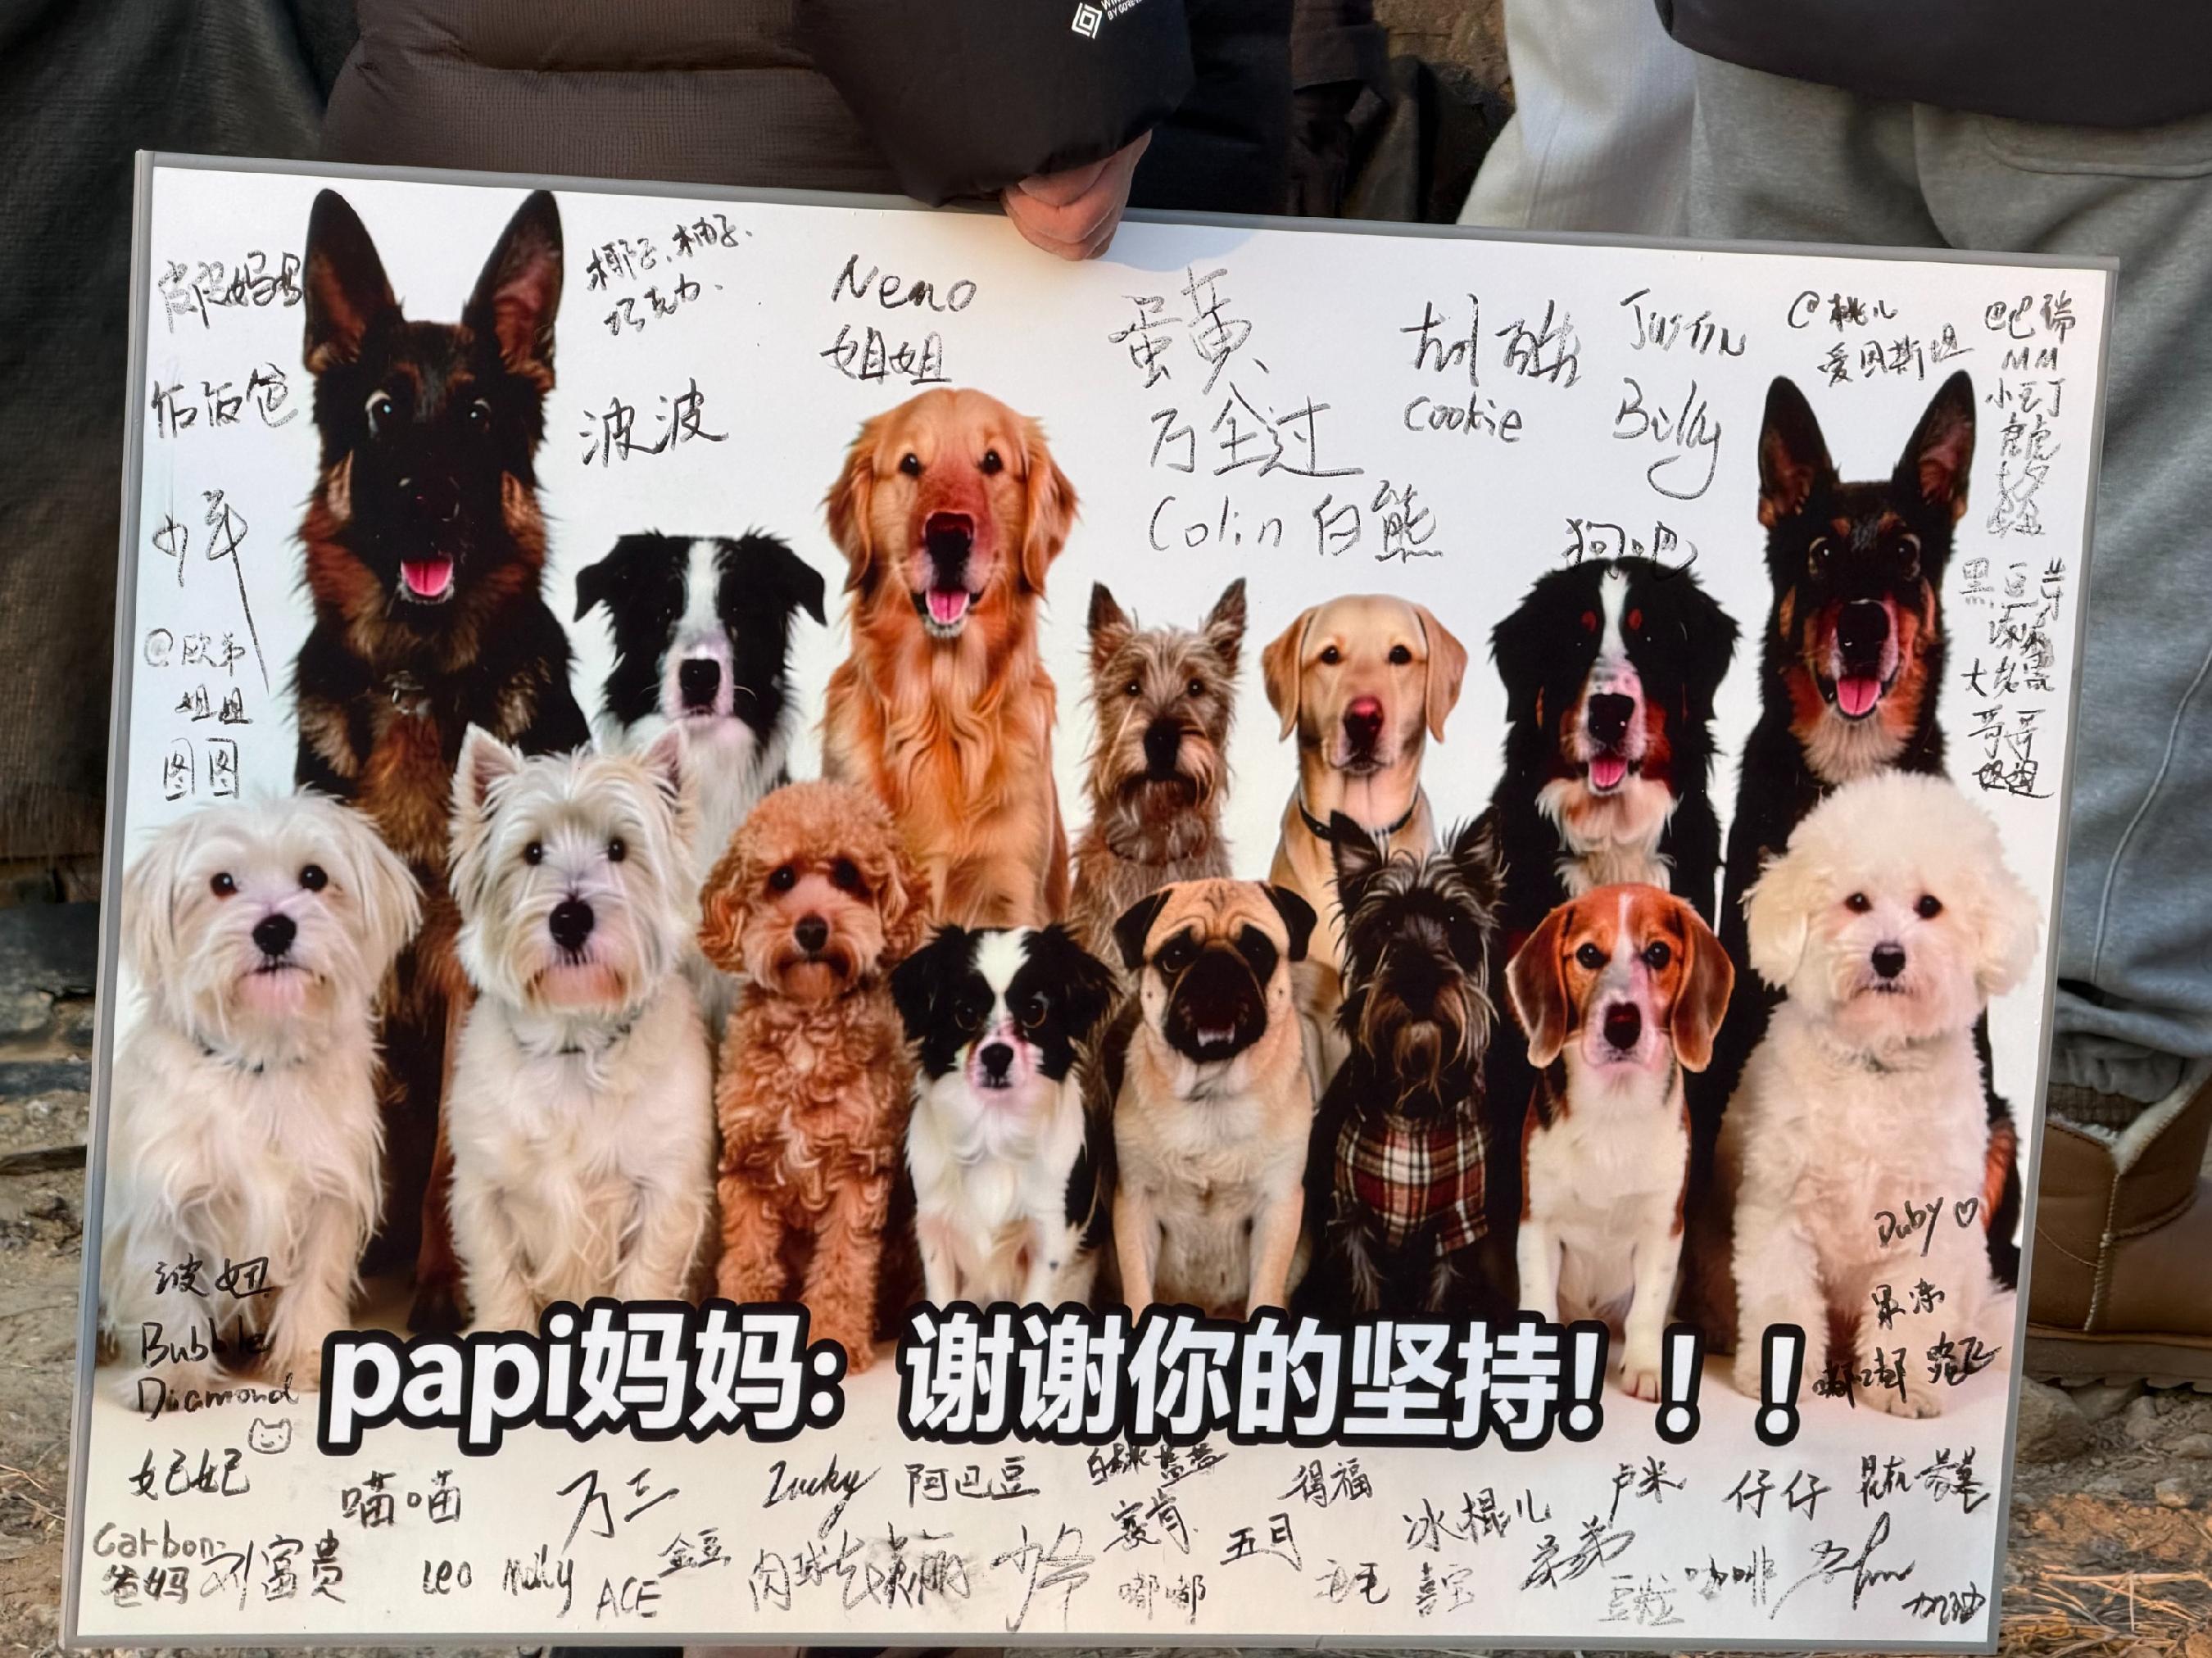 BY GORE
椰子、柚子、
巧克力、
Nemo
姐姐
蛋黄
万全过
Colin 白熊
胡酷
Cookie
Justin
Billy
@桃儿
爱因斯坦
@巴瑞
MM
小叮
狗吧
黑豆
大老黑
哥哥
姐姐
饭饭爸
波波
少年
@欧弟
姐姐
图图
波妞
Bubble
Diamond
Duby♡
果冻
嘟嘟
papi妈妈：谢谢你的坚持！！！
妃妃
喵喵
万三
Lucky
阿巴豆
得福
冰棍儿
卢米
仔仔
Carbon
爸妈
刘富贵
Leo
Molly
ACE
金豆
肉球
嘟嘟
五月
毛毛
喜宝
弟弟
豆粒
咖啡
加油